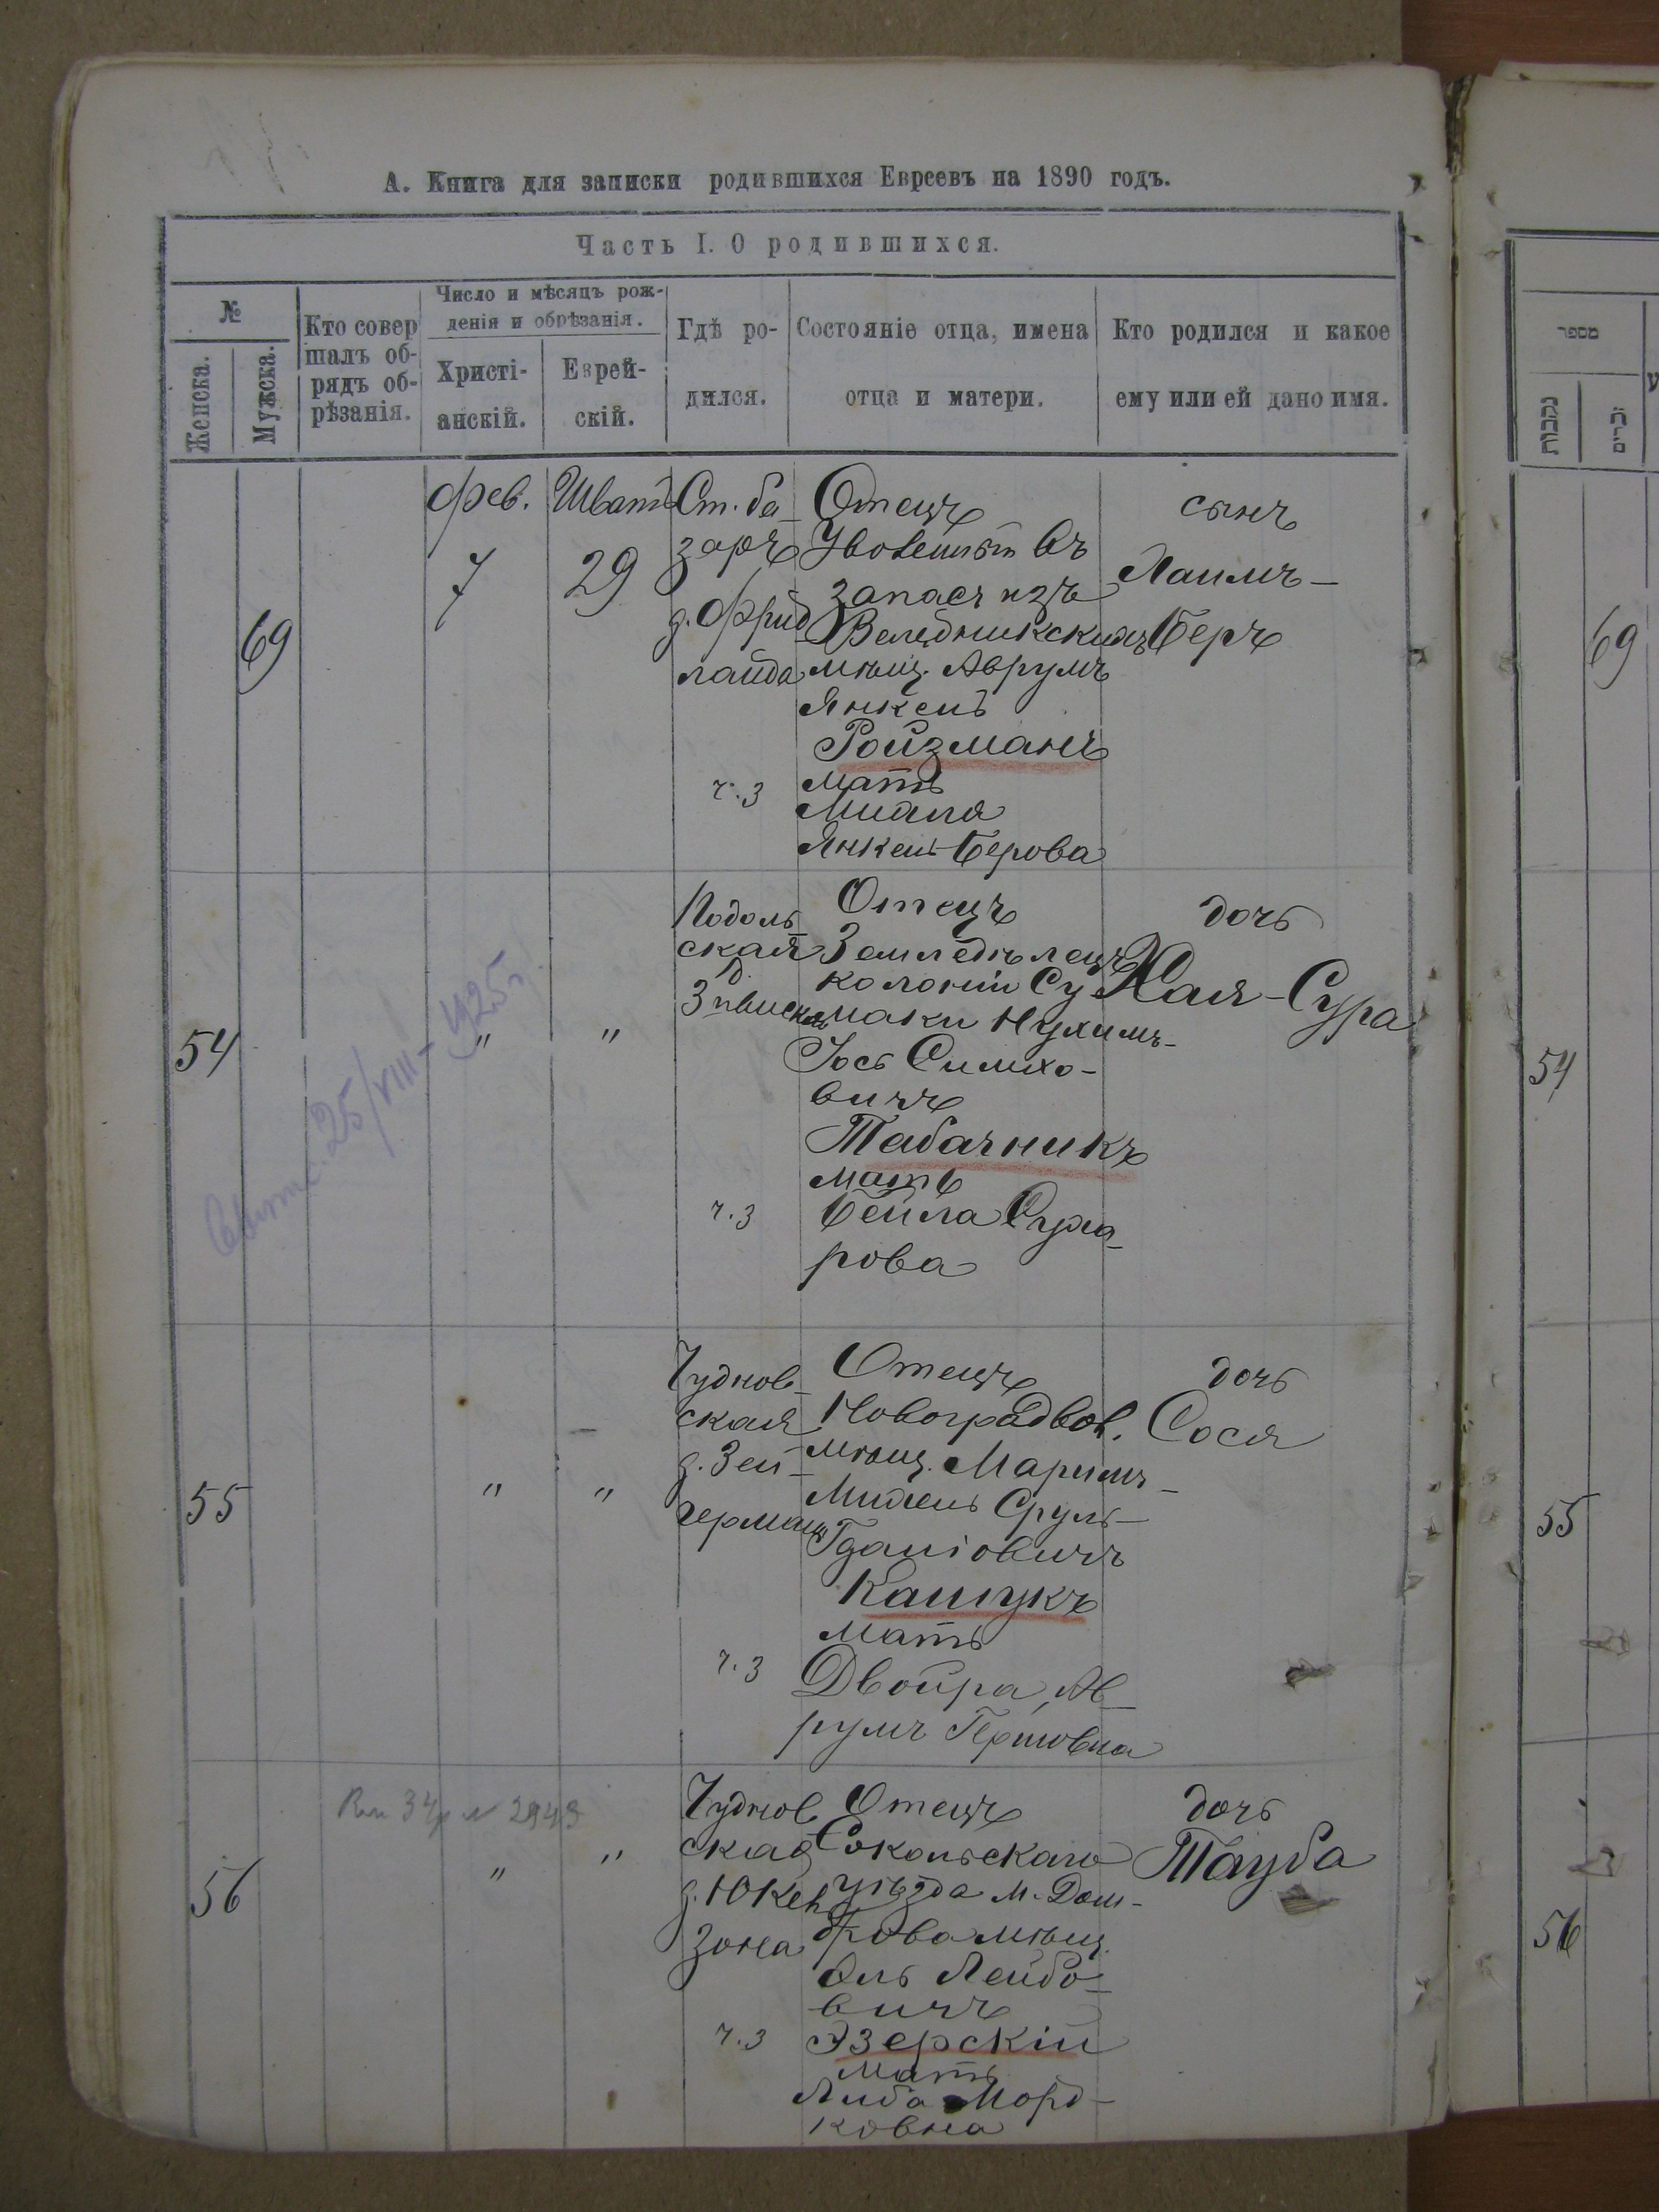 А. Книга для записки родившихся Евреевъ на 1890 годъ.
Часть I. О родившихся.
№
Женска.
Мужска.
Кто совер
шалъ об-
рядъ об-
рѣзанія.
Число и мѣсяцъ рож-
денія и обрѣзанія.
Христі-
анскій.
Еврей-
скій.
Гдѣ ро-
дился.
Состояніе отца, имена
отца и матери.
Кто родился и какое
ему или ей дано имя.
69
Фев.
7
Шватъ
29
Ст. ба-
зарѣ
д. Фрид
ланда
ч. 3
Отецъ
въ
запасъ изъ
Веледникскихъ
мѣщ. Аврумъ
Янкель
Ройзманъ
мать
Янкель-Берова
сынъ
Хаимъ-
Беръ
54
"
"
Подоль-
ская
д.
ч. 3
Отецъ
Земледѣлецъ
колоніи Су-
маки Нухимъ-
Іось Симхо-
вичъ
Табачникъ
мать
Бейла Суха-
рова
дочь
Хая-Сура
25/VIII-1925г.
55
"
"
Чуднов-
ская
д. Зей-
германъ
ч. 3
Отецъ
Новоградвол.
мѣщ.
Сруль-
Гдаліовичъ
Кашукъ
мать
Двойра Ав-
румъ Гершовна
дочь
Сося
56
"
"
Чуднов
ская
д. Юкель
зона
ч. 3
Отецъ
Сокольскаго
уѣзда м. Дом-
брова мѣщ.
Лейбо-
вичъ
Эзерскій
мать
Либа Морд-
ковна
дочь
Тауба
2943
מספר
נקבות
זכרים
69
54
55
56